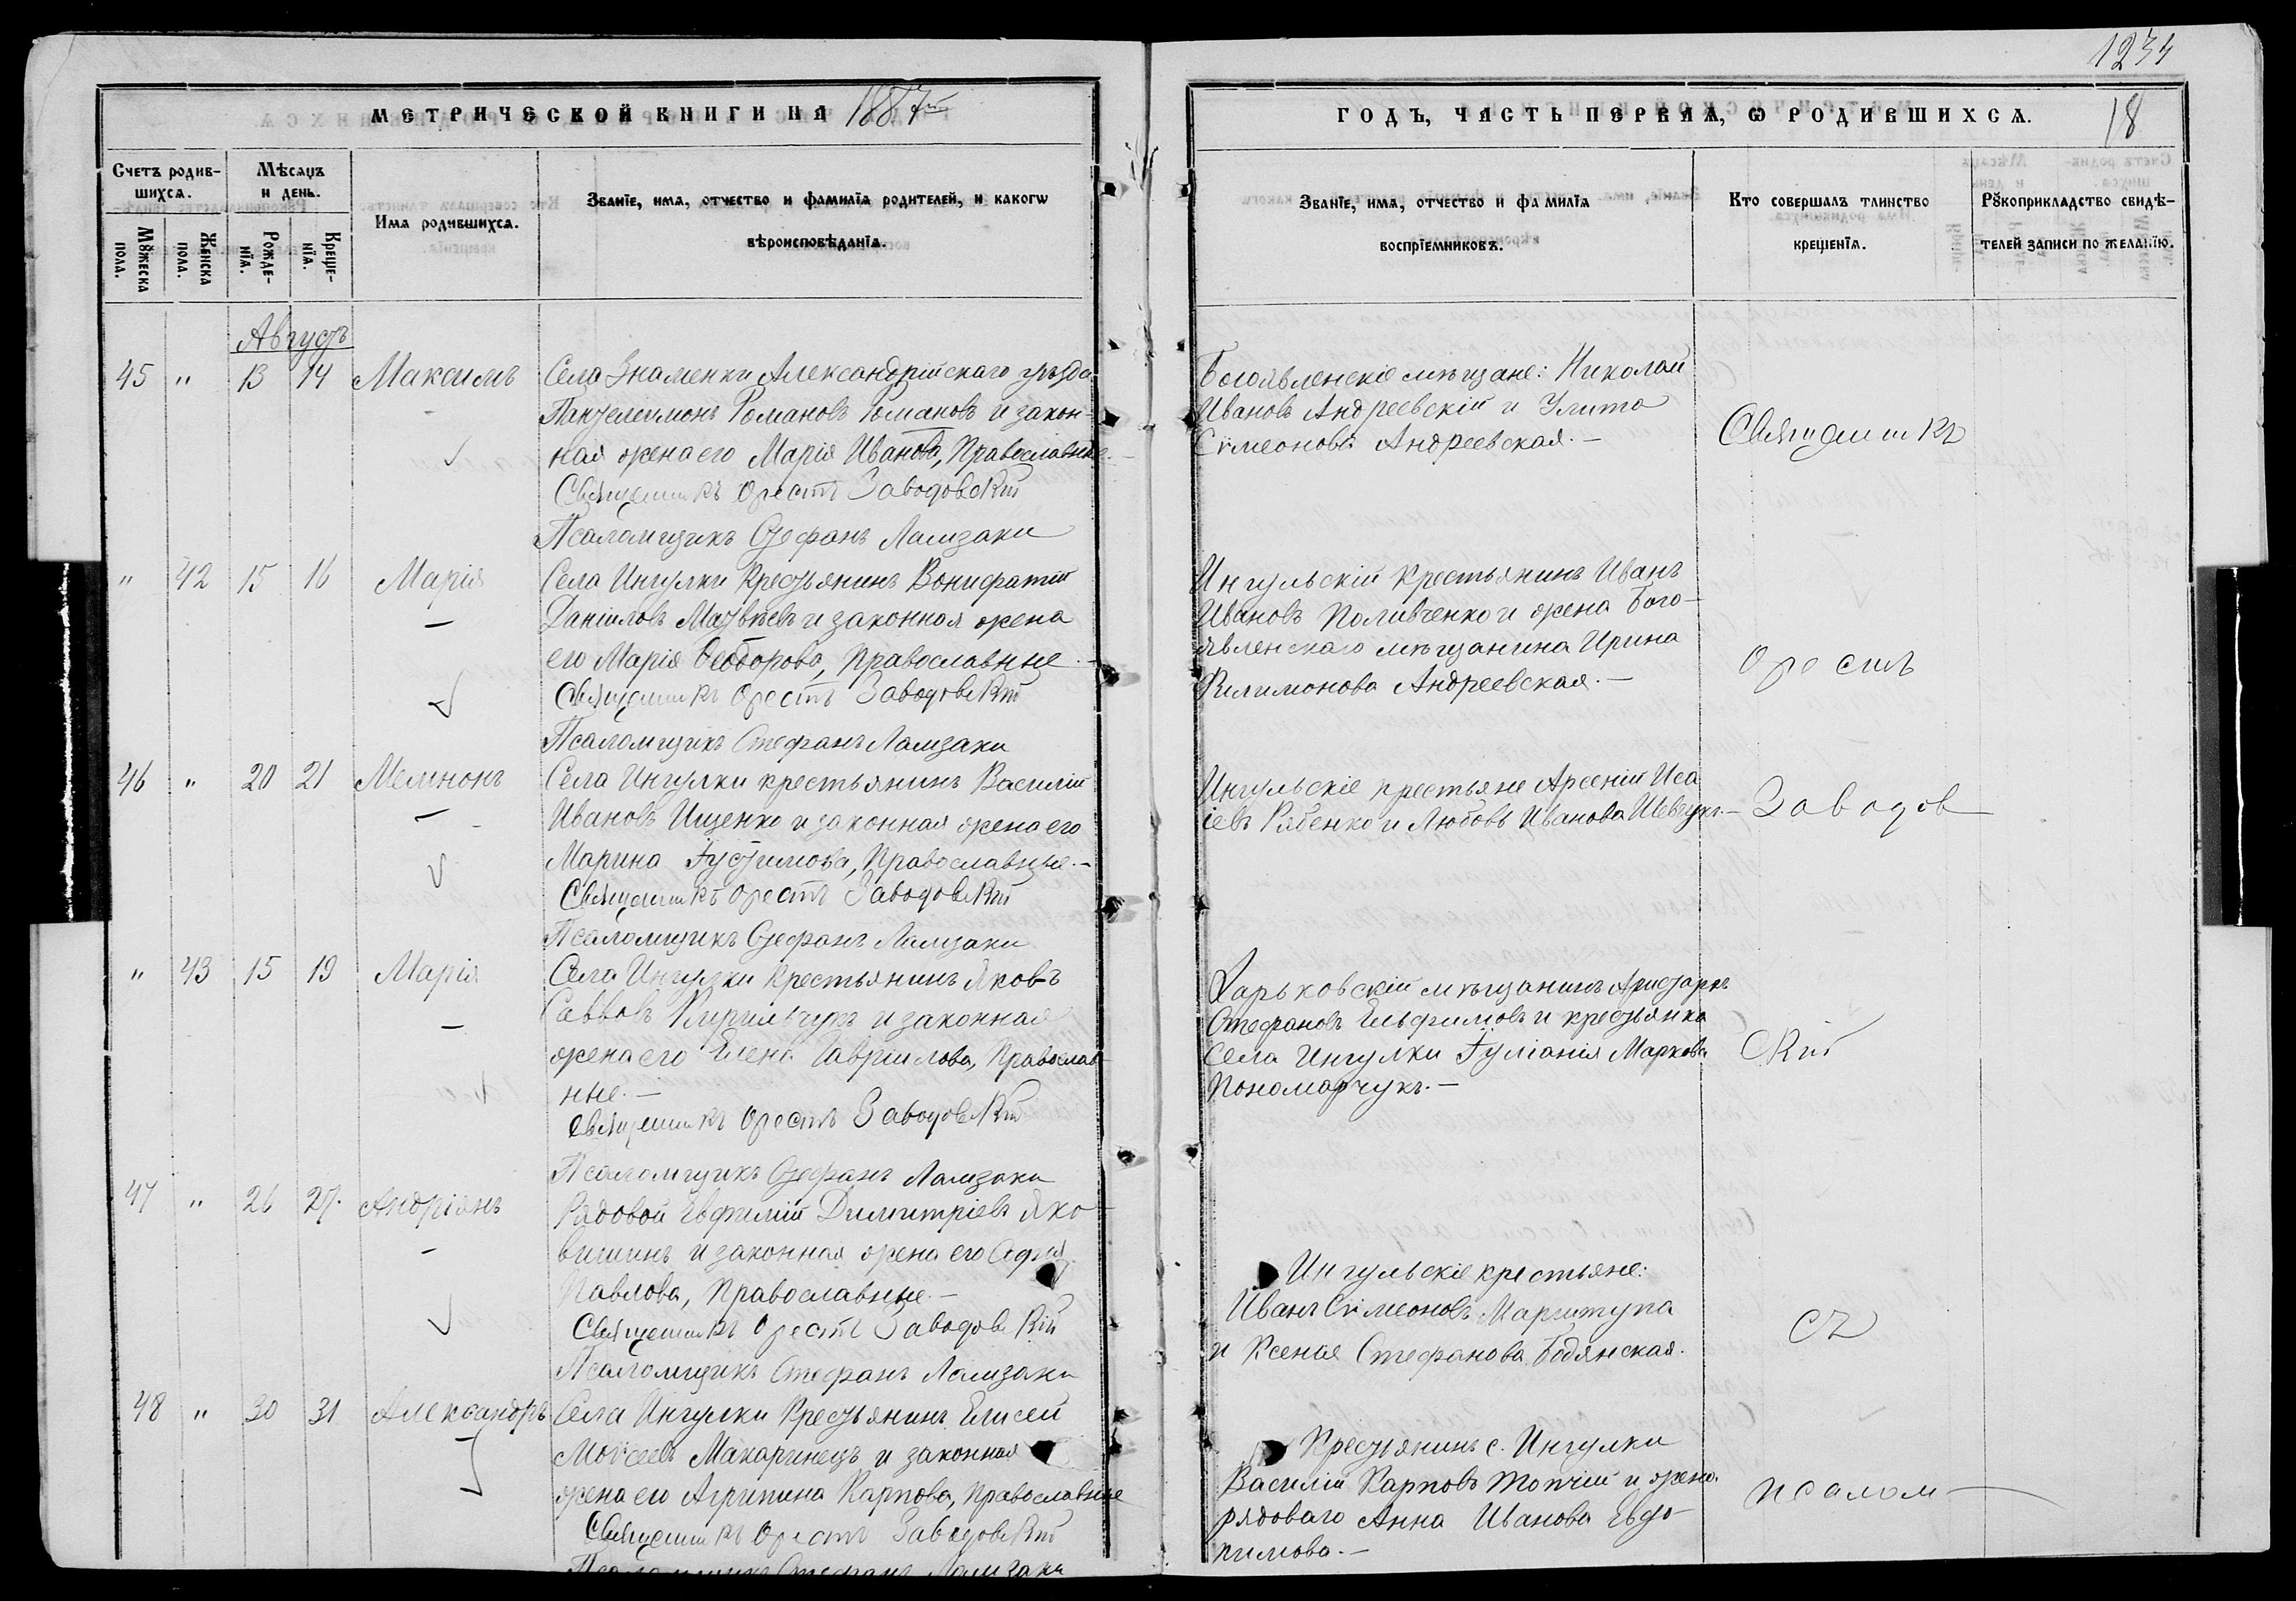 1234
МЕТРИЧЕСКОЙ КНИГИ НА 1887й
ГОДЪ, ЧАСТЬ ПЕРВАЯ, Ѡ РОДИВШИХСѦ.
18
Счетъ родив-
шихсѧ.
Мꙋжеска
пола.
Женска
пола.
Мѣсѧцъ
и день.
Рожде-
нїѧ.
Креще-
нїѧ.
Имѧ родившихсѧ.
Званїе, имѧ, отчество и фамилїѧ родителей, и какогѡ
вѣроисповѣданїѧ.
Званїе, имѧ, отчество и фамилїѧ
воспрїемниковъ.
Кто совершалъ таинство
крещенїѧ.
Рꙋкоприкладство свидѣ-
телей записи по желанїю.
Августъ
45 " 13 14 Максимъ
Села Знаменки Александрійскаго уѣзда
Пантелеимонъ Романовъ Романовъ и закон-
ная жена его Марія Иванова, Православные.
Священникъ Орестъ Заводовскій
Псаломщикъ Стефанъ Ламзаки
Богоявленскіе мѣщане: Николай
Ивановъ Андреевскій и Улита
Сѵмеонова Андреевская.—
Священникъ
" 42 15 16 Марія
Села Ингулки Крестьянинъ Вонифатій
Даніиловъ Матвѣевъ и законная жена
его Марія Ѳеодорова, Православные.—
Священникъ Орестъ Заводовскій
Псаломщикъ Стефанъ Ламзаки
Ингульскій Крестьянинъ Иванъ
Ивановъ Поливченко и жена Бого-
явленскаго мѣщанина Ирина
Филимонова Андреевская.—
Орестъ
46 " 20 21 Мемнонъ
Села Ингулки крестьянинъ Василій
Ивановъ Ищенко и законная жена его
Марина Іустимова, Православные.—
Священникъ Орестъ Заводовскій
Псаломщикъ Стефанъ Ламзаки
Ингульскіе крестьяне Арсеній Иса
іевъ Рябенко и Любовь Иванова Шевчукъ.—
Заводов
" 43 15 19 Марія
Села Ингулки Крестьянинъ Яковъ
Саввовъ Кирильчукъ и законная
жена его Елена Гавріилова, Православ-
ные.—
Священникъ Орестъ Заводовскій
Псаломщикъ Стефанъ Ламзаки
Харьковскій мѣщанинъ Аристархъ
Стефановъ Ельфимовъ и крестьянка
Села Ингулки Іуліанія Маркова
Пономарчукъ.—
скій
47 " 26 27. Андріянъ
Рядовой Евфимій Димитріевъ Яко-
вишинъ и законная жена его
Павлова, Православные.—
Священникъ Орестъ Заводовскій
Псаломщикъ Стефанъ Ламзаки
Ингульскіе крестьяне:
Иванъ Сѵмеоновъ Маргитупа
и Ксенія Стефанова Бодянская.
съ
48 " 30 31 Александръ
Села Ингулки Крестьянинъ Елисей
Моѵсеевъ Макаринецъ и законная
жена его Агрипина Карпова, Православные
Священникъ Орестъ Заводовскій
Псаломщикъ Стефанъ Ламзаки
Крестьянинъ с. Ингулки
Василій Карповъ Топчій и жена
рядоваго Анна Иванова Евдо-
кимова.—
псалом—